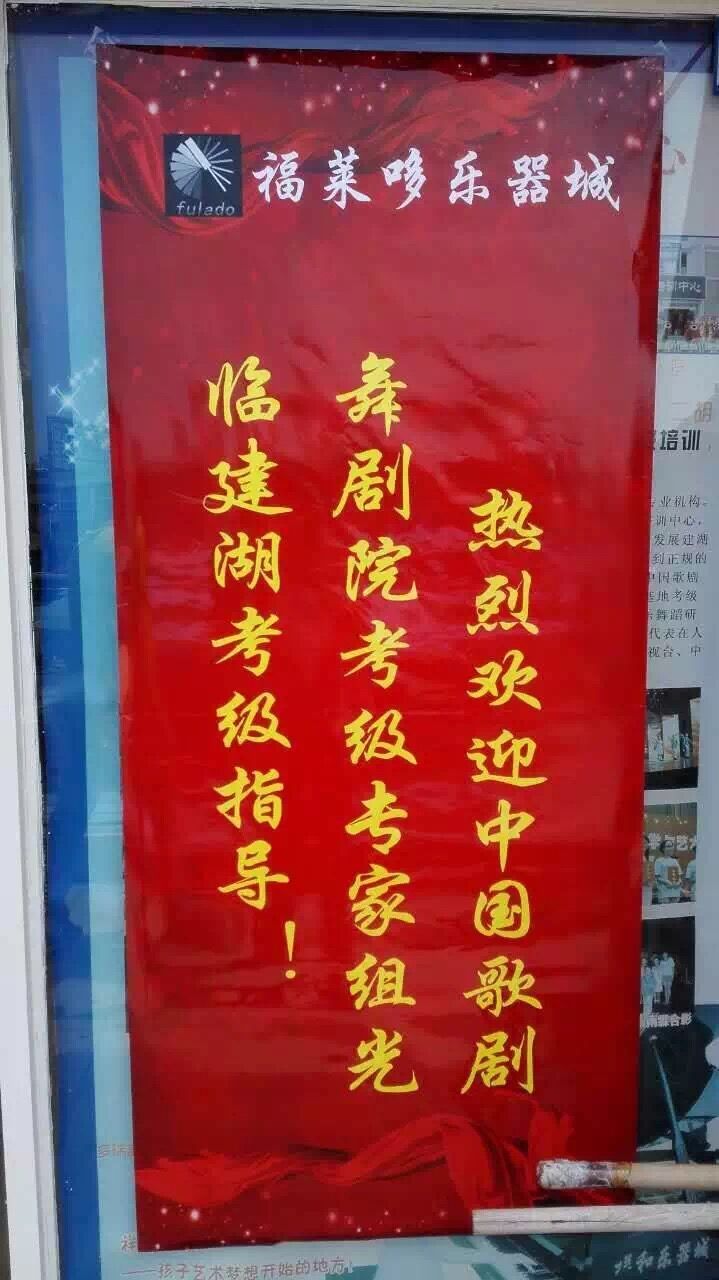 fulado
福莱哆乐器城
热烈欢迎中国歌剧
舞剧院考级专家组光
临建湖考级指导！
心
培训中心
二胡
培训
专业机构。
训中心，
发展建湖
到正规的
中国歌剧
基地考级
乐舞蹈研
代表在人
视台、中
学与艺术
合影
——孩子艺术梦想开始的地方
和乐器城